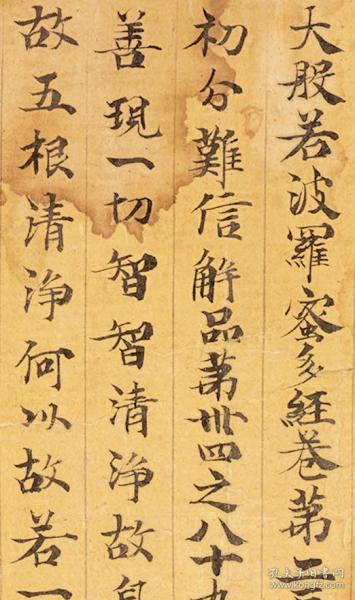 大般若波羅蜜多經卷第二
初分難信解品第卅四之八十九
善現一切智智清淨故
故五根清淨何以故若一
孔夫子旧书网
kongfz.com